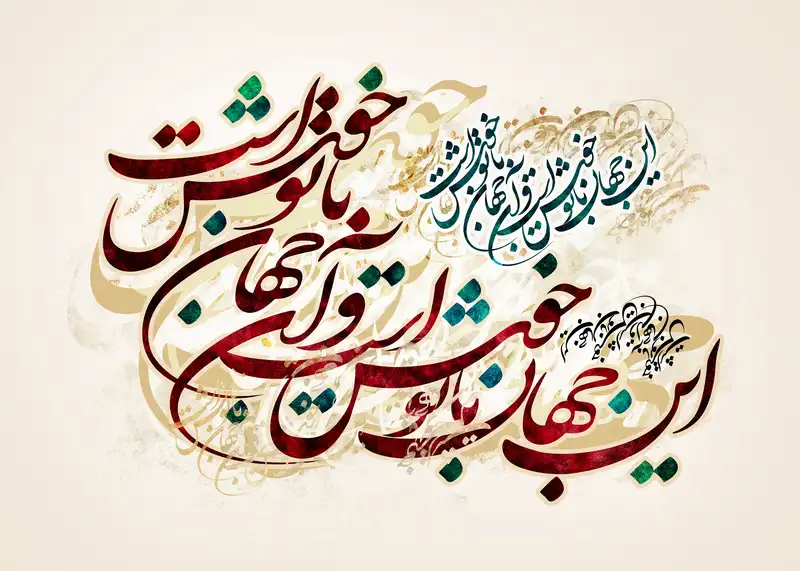 این جهان با تو خوش است و آن جهان با تو خوش است
این جهان با تو خوش است و آن جهان با تو خوش است